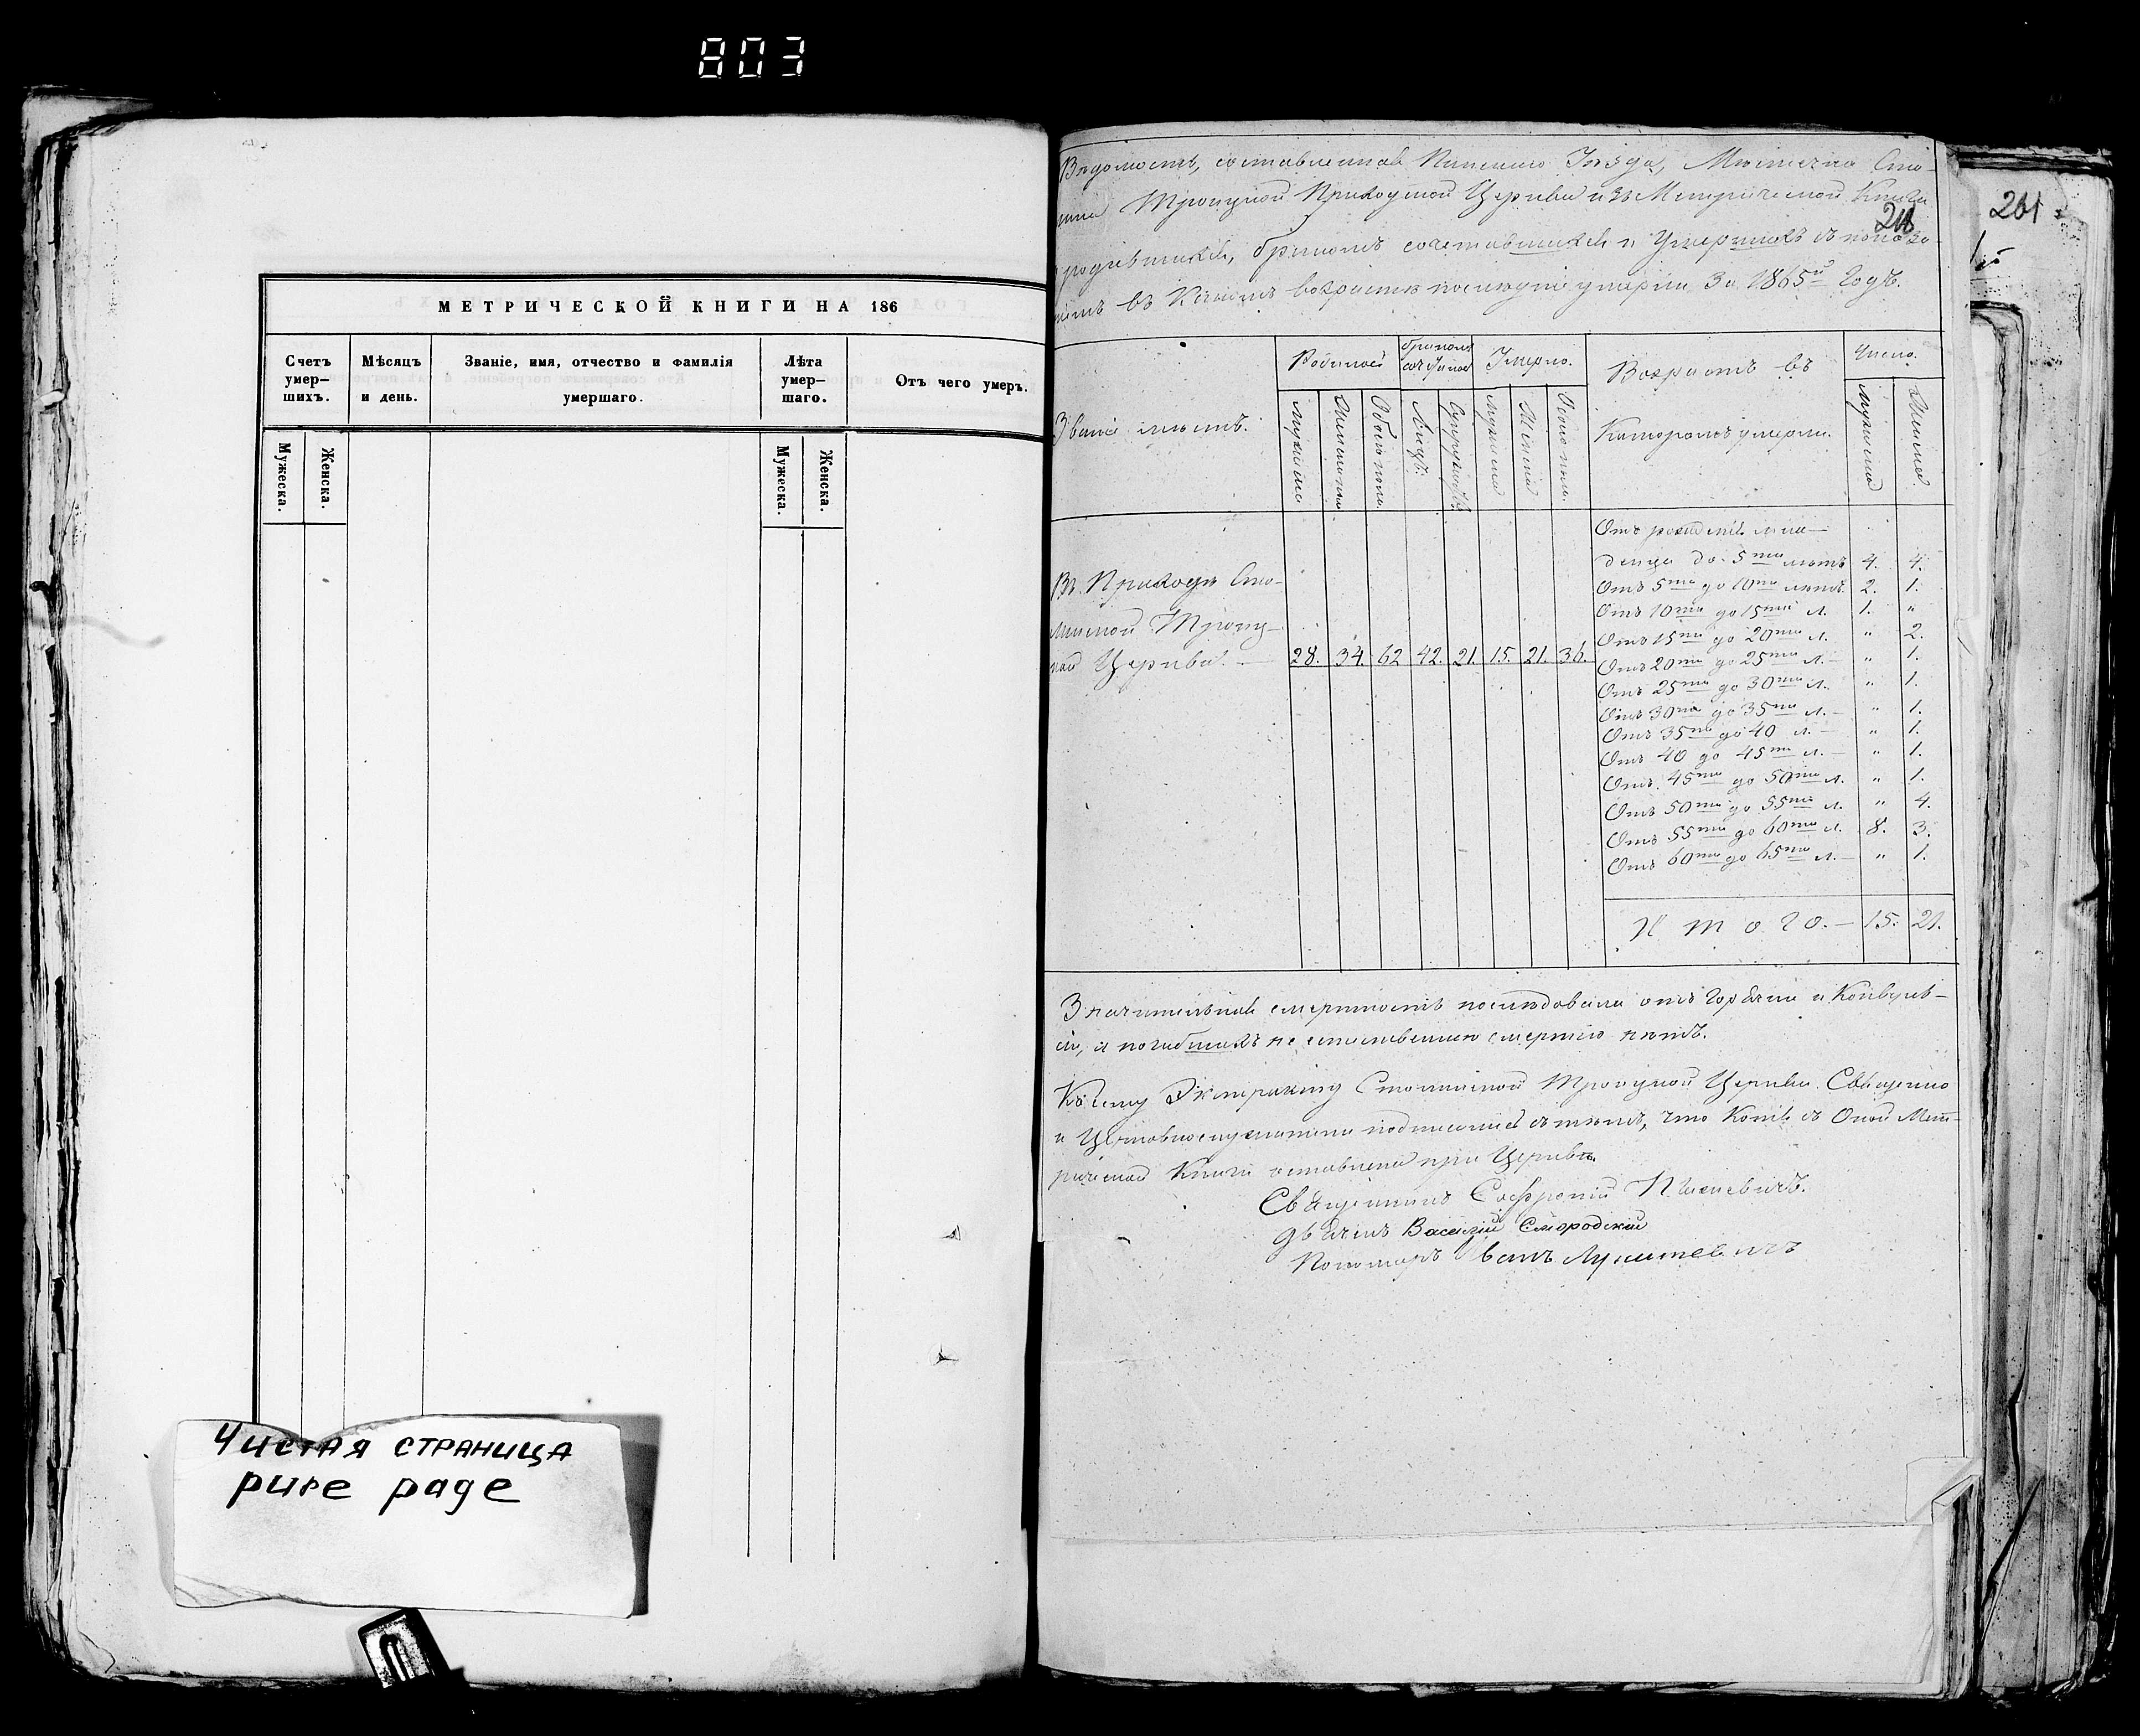 803
МЕТРИЧЕСКОЙ КНИГИ НА 186
Счетъ умер- шихъ.
Мѣсяцъ и день.
Званіе, имя, отчество и фамилія умершаго.
Лѣта умер- шаго.
Отъ чего умеръ.
Мужеска.
Женска.
Мужеска.
Женска.
Чистая страница
pure page
261
Вѣдомость, составленная Пинскаго Уѣзда, Мѣстечка Сто-
лина Троицкой Приходской Церкви изъ Метрической Книги
родившихся, бракомъ сочетавшихся и Умершихъ съ показа-
въ Какомъ возрастѣ послѣдніе умерли За 1865й Годъ.
Званіе мѣстъ.
Родилось
бракомъ сочетано
Умерло.
Возрастъ въ
Которомъ умерли.
Число.
Мужеска
Женска
Обоего пола.
Лицъ.
Супружествъ
Мужеска
Женска
Обоего пола.
Мужеска
Женска
Въ Приходѣ Сто-
линской Троиц-
кой Церкви. — 28. 34. 62 42. 21. 15. 21. 36.
Отъ рожденія мла-
денца до 5ти лѣтъ 4. 4.
Отъ 5ти до 10ти лѣтъ. 2. 1.
Отъ 10ти до 15ти л. 1. "
Отъ 15ти до 20ти л. " 2.
Отъ 20ти до 25ти л. — " 1.
Отъ 25ти до 30ти л. " 1.
Отъ 30ти до 35ти л. — " 1.
Отъ 35ти до 40 л. — " 1.
Отъ 40 до 45ти л. — " 1.
Отъ 45ти до 50ти л. " 1.
Отъ 50ти до 55ти л. " 4.
Отъ 55ти до 60ти л. 8. 3.
Отъ 60ти до 65ти л. — " 1.
Итого. — 15. 21.
Значительная смертность послѣдовала отъ Горячки и Конвуль-
сіи, а погибшихъ не естественною смертію нѣтъ.
Къ сему Экстракту Столинской Троицкой Церкви Священно
и Церковнослужители подписались съ тѣмъ, что Копія съ Оной Мет-
рической Книги оставлена при Церкви
Священникъ Софроній
дьячекъ Василій Смородскій
Пономарь Иванъ